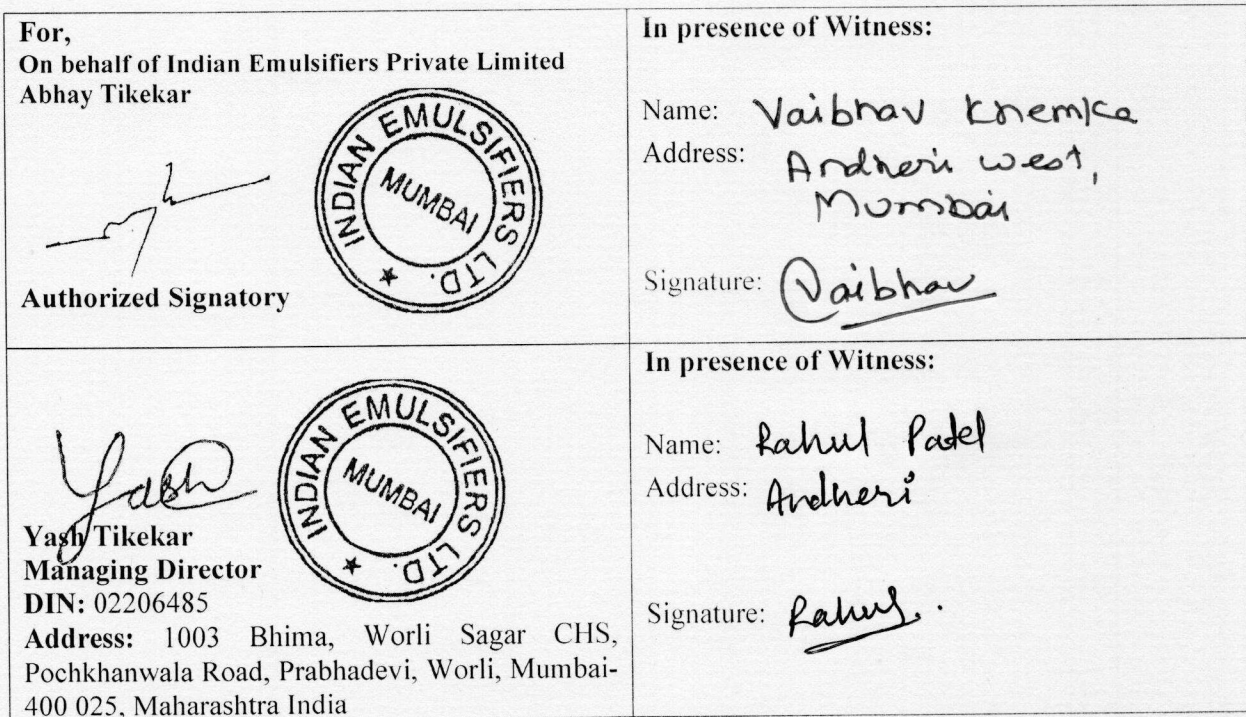 For,
On behalf of Indian Emulsifiers Private Limited
Abhay Tikekar
INDIAN EMULSIFIERS LTD. ★
MUMBAI
Authorized Signatory
In presence of Witness:
Name: Vaibhav Khemka
Address: Andheri west,
Mumbai
Signature: Vaibhav
Yash
INDIAN EMULSIFIERS LTD. ★
MUMBAI
Yash Tikekar
Managing Director
DIN: 02206485
Address: 1003 Bhima, Worli Sagar CHS,
Pochkhanwala Road, Prabhadevi, Worli, Mumbai-
400 025, Maharashtra India
In presence of Witness:
Name: Rahul Patel
Address: Andheri
Signature: Rahul.